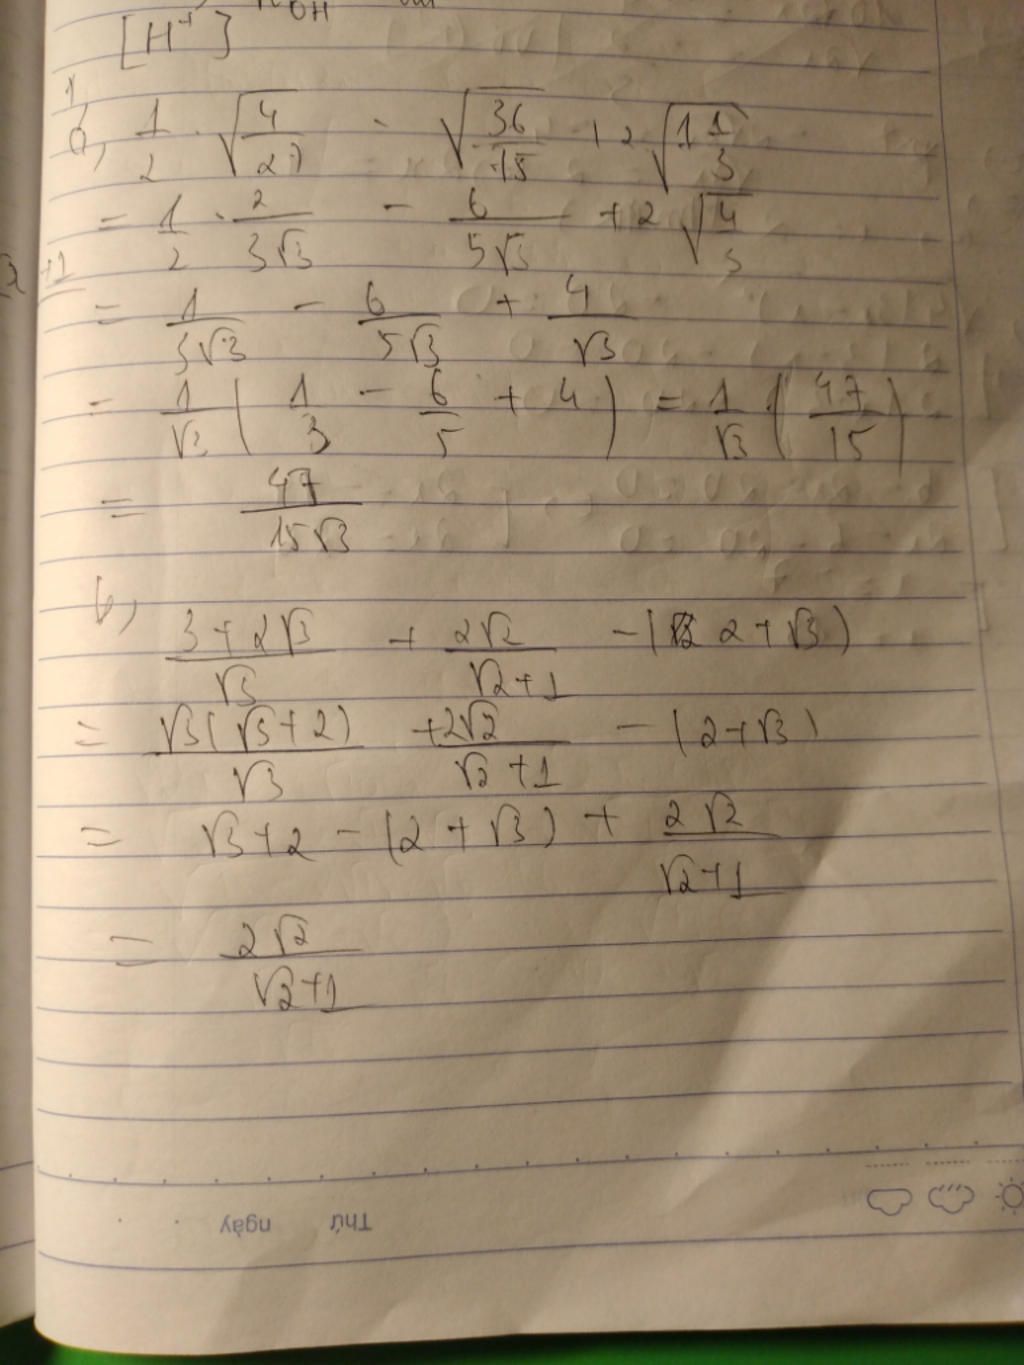 [H⁺] K_OH
1,
a, 1/2 · √(4/27) - √(36/75) + 2√(1 1/3)
= 1/2 · 2/(3√3) - 6/(5√3) + 2√(4/3)
= 1/(3√3) - 6/(5√3) + 4/√3
= 1/√3 (1/3 - 6/5 + 4) = 1/√3 · (47/15)
= 47/(15√3)
b,
(3+2√3)/√3 + 2√2/(√2+1) - (2+√3)
= √3(√3+2)/√3 + 2√2/(√2+1) - (2+√3)
= √3+2 - (2+√3) + 2√2/(√2+1)
= 2√2/(√2+1)
Thứ ngày